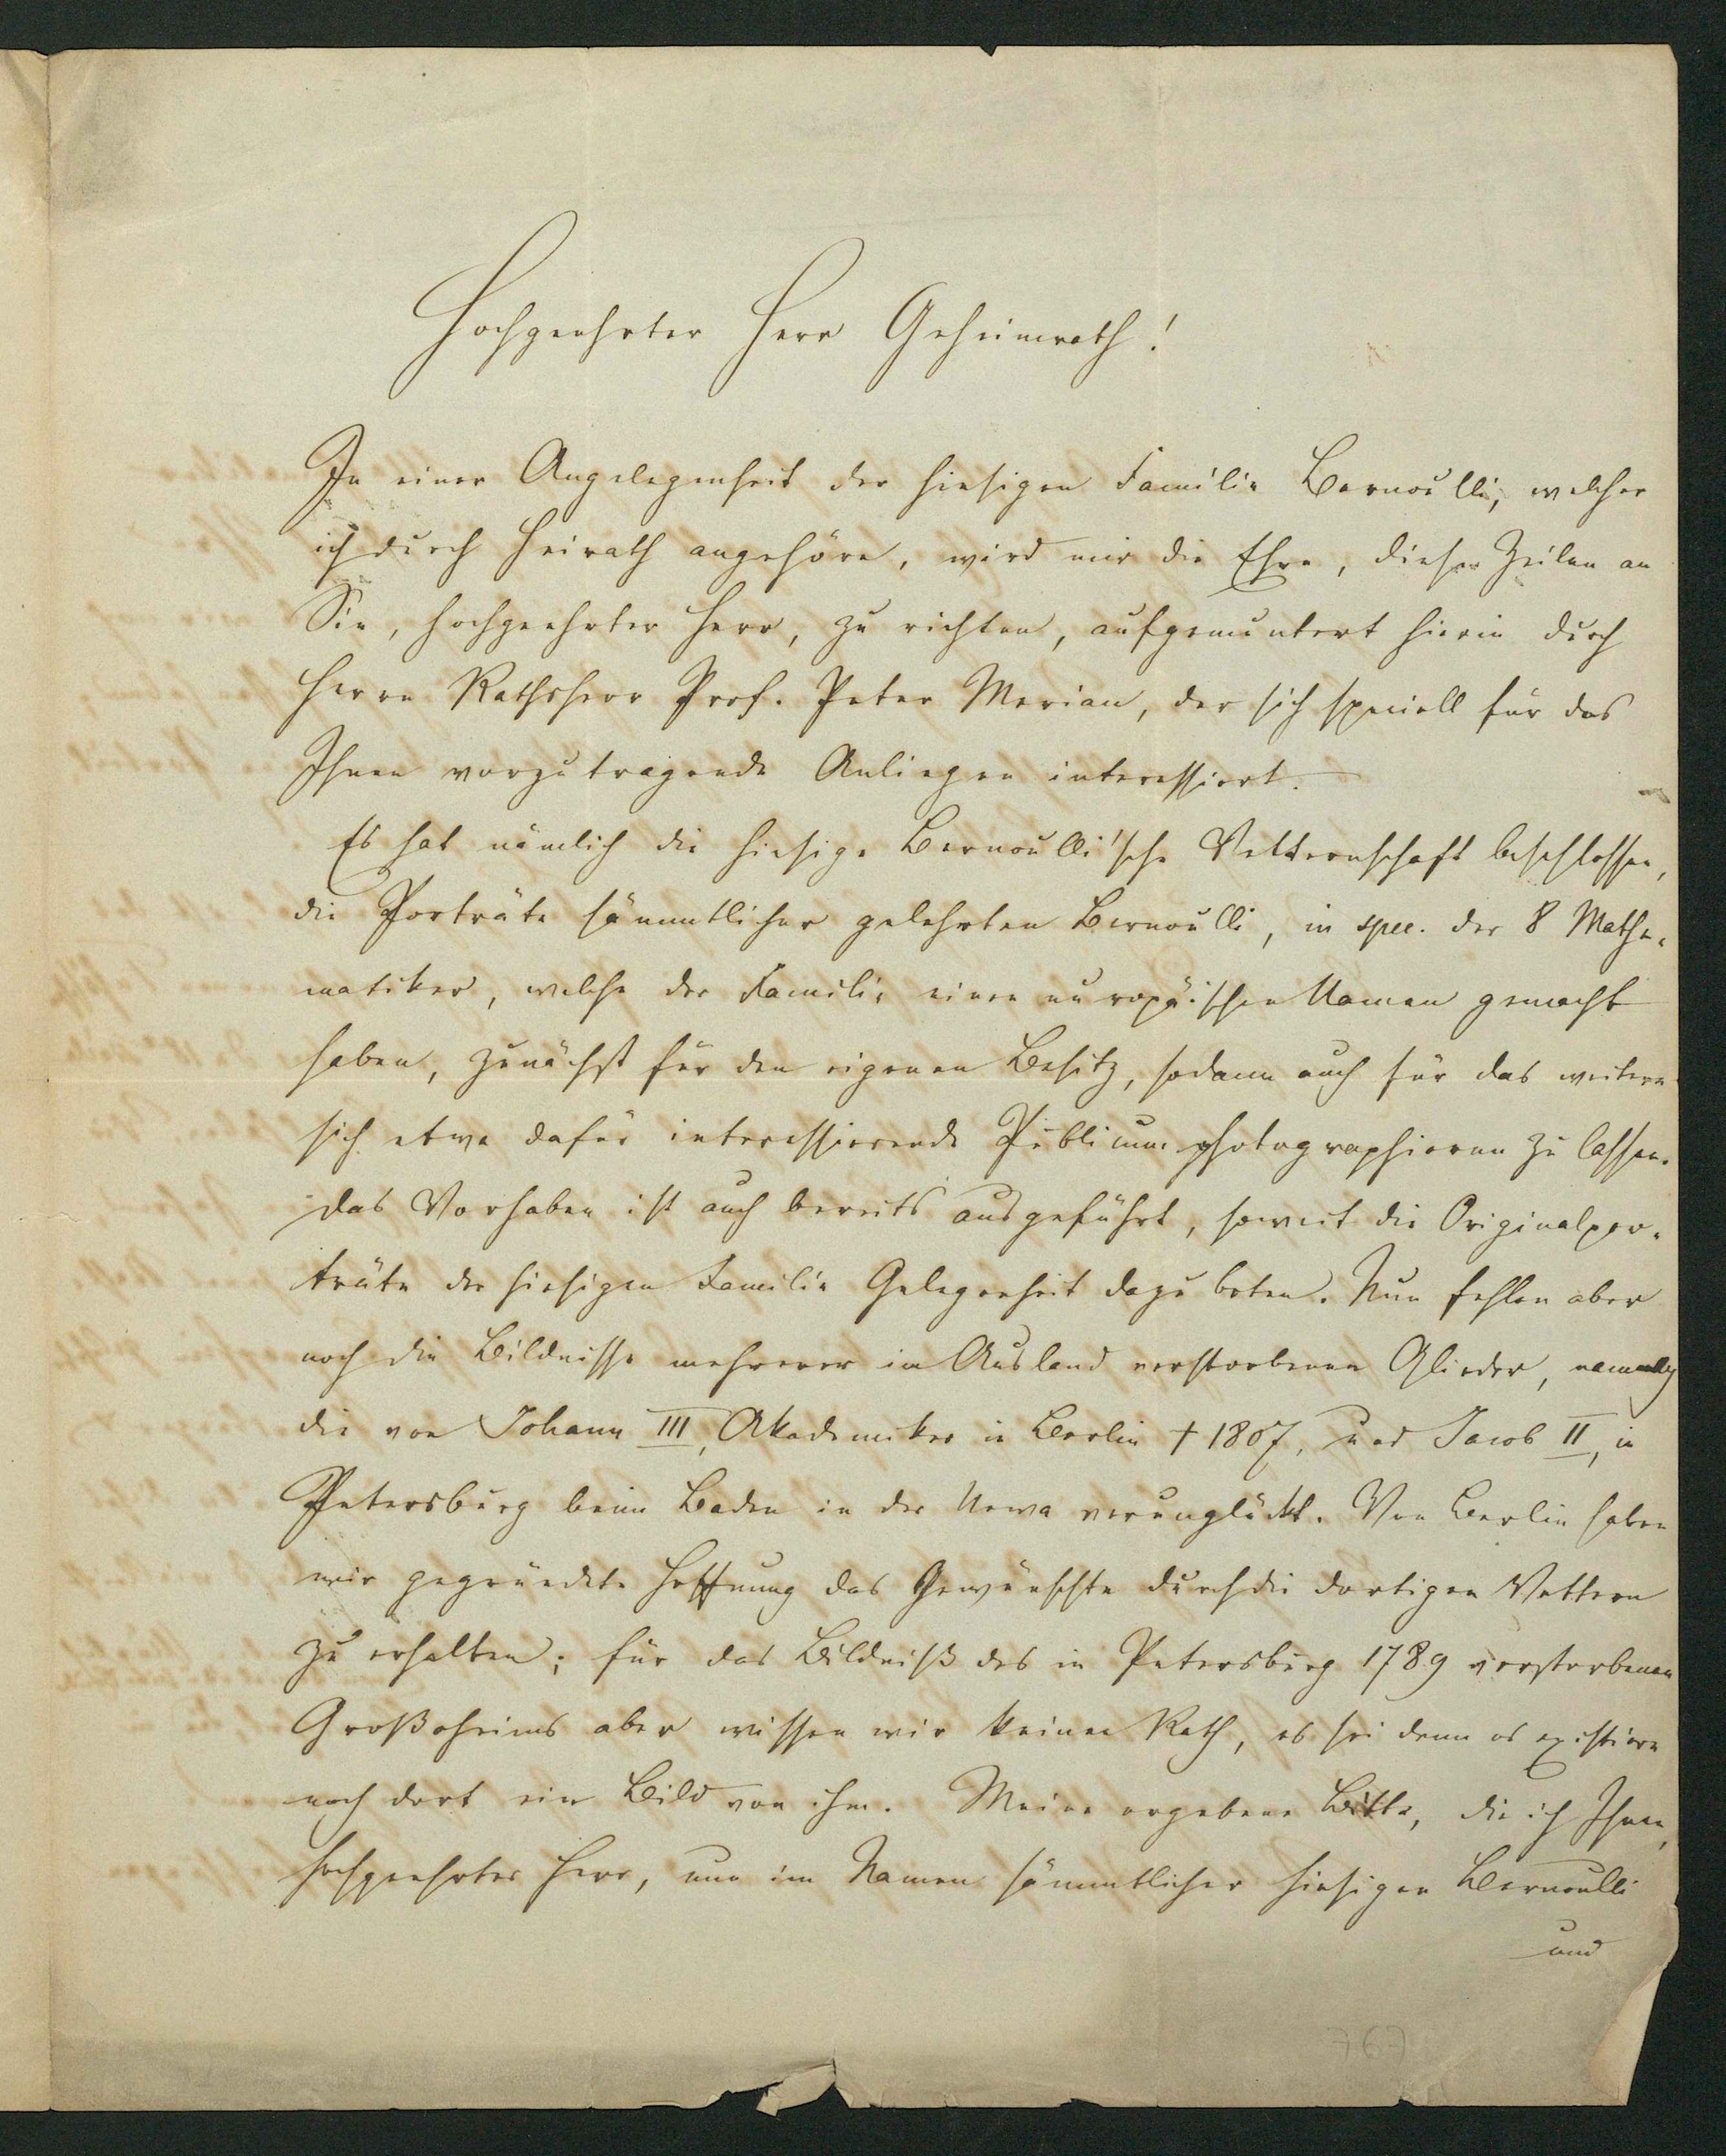 Hochgeehrter Herr Geheimrath!
In einer Angelegenheit der hiesigen Familie Bernoulli, welcher
ich durch Heirath angehöre, wird mir die Ehre, diese Zeilen an
Sie, hochgeehrter Herr, zu richten, aufgemuntert hierin durch
Herrn Rathsherr Prof. Peter Merian, der sich speciell für das
Ihnen vorzutragende Anliegen interessiert.
Es hat nämlich die hiesige Bernoulli'sche Vetternschaft beschlossen,
die Porträte sämmtlicher gelehrten Bernoulli, in spec. der 8 Mathe-
matiker, welche der Familie einen europäischen Namen gemacht
haben, zunächst für den eigenen Besitz, sodann auch für das weitere
sich etwa dafür interessierende Publicum photographieren zu lassen.
Das Vorhaben ist auch bereits ausgeführt, soweit die Originalpor-
träte der hiesigen Familie Gelegenheit dazu boten. Nun fehlen aber
noch die Bildnisse mehrerer im Ausland verstorbenen Glieder, namentlich
die von Johann III, Akademiker in Berlin † 1807, und Jacob II, in
Petersburg beim Baden in der Newa verunglückt. Von Berlin haben
wir gegründete Hoffnung das Gewünschte durch die dortigen Vettern
zu erhalten; für das Bildniß des in Petersburg 1789 verstorbenen
Großoheims aber wissen wir keinen Rath, es sei denn es existiere
noch dort ein Bild von ihm. Meine ergebene Bitte, die ich Ihnen,
hochgeehrter Herr, nun im Namen sämmtlicher hiesigen Bernoulli
und
767